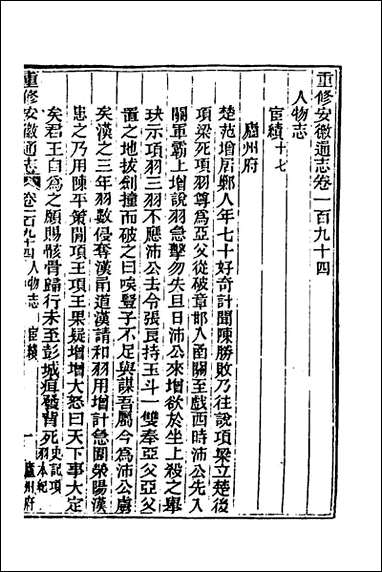 重修安徽通志卷一百九十四
人物志
宦績十七
廬州府
楚范增居鄛人年七十好奇計聞陳勝敗乃往說項梁立楚後
項梁死項羽尊爲亞父從破章邯入函關至戲西時沛公先入
關軍霸上增說羽急擊勿失旦日沛公來增欲於坐上殺之舉
玦示項羽三羽不應沛公去令張良持玉斗一雙奉亞父亞父
置之地拔劍撞而破之曰唉豎子不足與謀吾屬今爲沛公虜
矣漢之三年羽數侵奪漢甬道漢請和羽用增計急圍滎陽漢
患之乃用陳平策間項王項王果疑增增大怒曰天下事大定
矣君王自爲之願賜骸骨歸行未至彭城疽發背死史記項羽本紀
重修安徽通志 卷一百九十四 人物志 宦績 一 廬州府